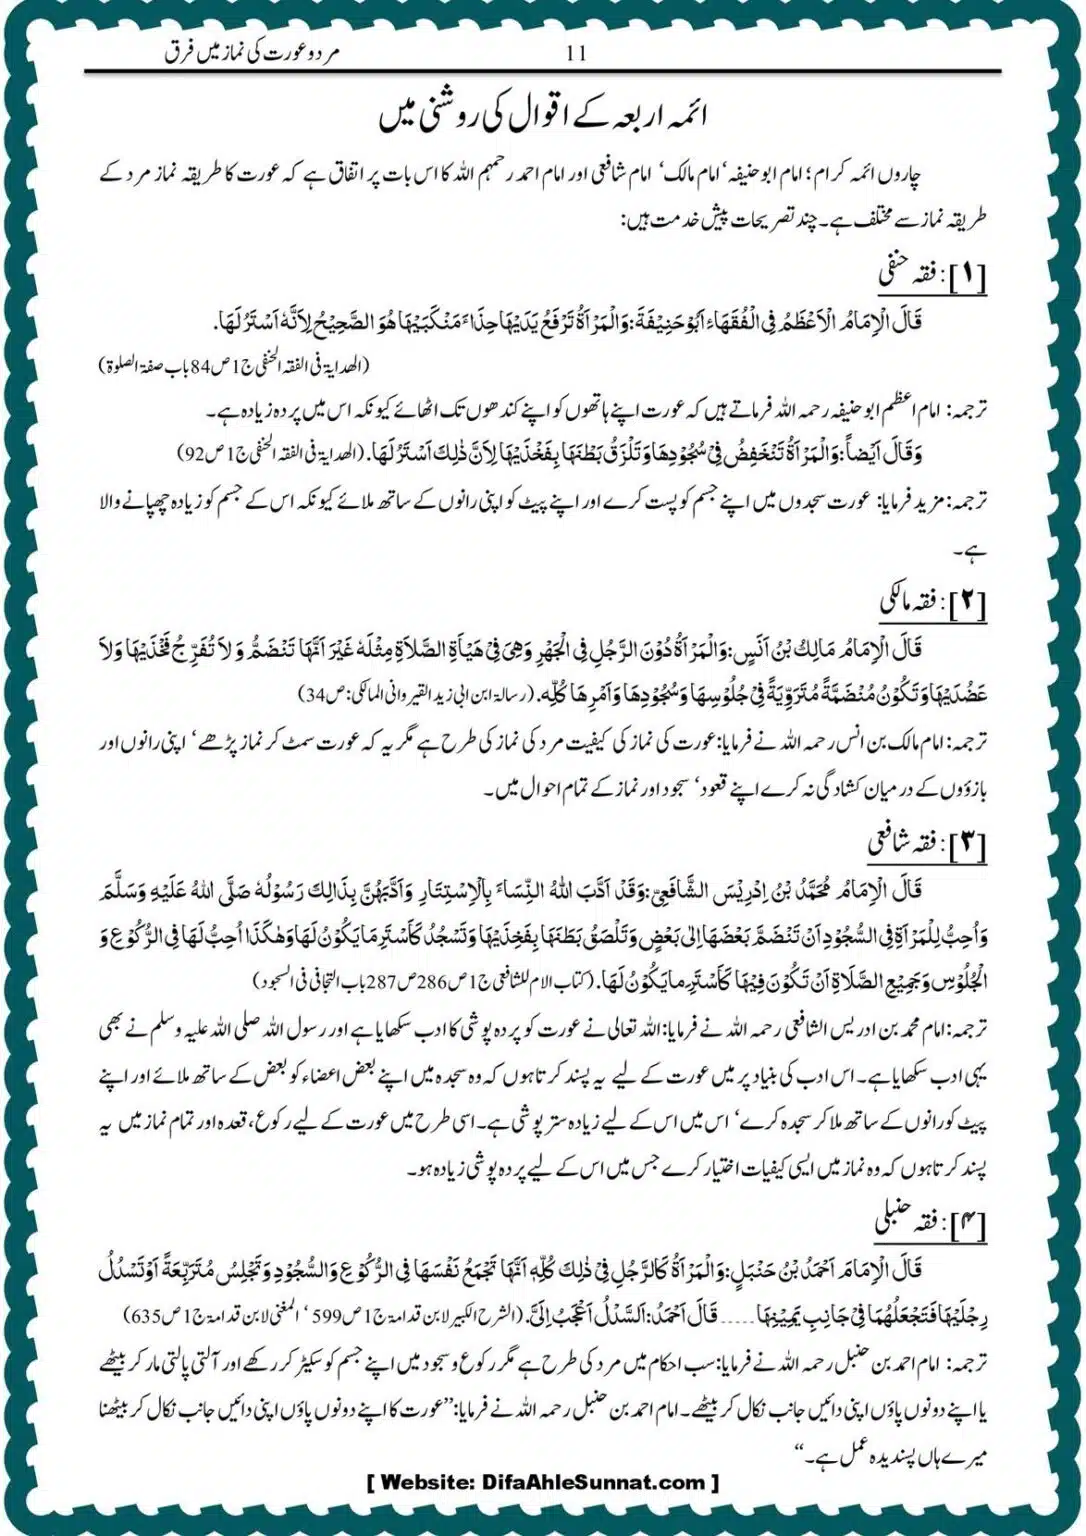 مرد و عورت کی نماز میں فرق
11
ائمہ اربعہ کے اقوال کی روشنی میں
چاروں ائمہ کرام؛ امام ابو حنیفہ‘ امام مالک‘ امام شافعی اور امام احمد رحمہم اللہ کا اس بات پر اتفاق ہے کہ عورت کا طریقہ نماز مرد کے
طریقہ نماز سے مختلف ہے۔ چند تصریحات پیش خدمت ہیں:
[۱]: فقہ حنفی
قَالَ الْاِمَامُ الْاَعْظَمُ فِی الْفُقَھَاءِ اَبُوْحَنِیْفَۃَ:وَالْمَرْاَۃُ تَرْفَعُ یَدَیْھَا حِذَاءَ مَنْکَبَیْھَا ھُوَ الصَّحِیْحُ لِاَنَّہٗ اَسْتَرُ لَھَا.
(الھدایۃ فی الفقہ الحنفی ج1 ص84 باب صفۃ الصلوۃ)
ترجمہ: امام اعظم ابو حنیفہ رحمہ اللہ فرماتے ہیں کہ عورت اپنے ہاتھوں کو اپنے کندھوں تک اٹھائے کیونکہ اس میں پردہ زیادہ ہے۔
وَقَالَ اَیْضاً:وَالْمَرْاَۃُ تَنْخَفِضُ فِیْ سُجُوْدِھَا وَتَلْزَقُ بَطْنَھَا بِفَخْذَیْھَا لِاَنَّ ذٰلِکَ اَسْتَرُ لَھَا. (الھدایۃ فی الفقہ الحنفی ج1 ص92)
ترجمہ: مزید فرمایا: عورت سجدوں میں اپنے جسم کو پست کرے اور اپنے پیٹ کو اپنی رانوں کے ساتھ ملائے کیونکہ اس کے جسم کو زیادہ چھپانے والا
ہے۔
[۲]: فقہ مالکی
قَالَ الْاِمَامُ مَالِکُ بْنُ اَنَسٍ:وَالْمَرْاَۃُ دُوْنَ الرَّجُلِ فِی الْجَھْرِ وَھِیَ فِیْ ھَیْاَۃِ الصَّلَاۃِ مِثْلُہٗ غَیْرَ اَنَّھَا تَنْضَمُّ وَ لَا تُفَرِّجُ فَخْذَیْھَا وَلَا
عَضُدَیْھَا وَتَکُوْنُ مُنْضَمَّۃً مُتَرَوِّیَۃً فِیْ جُلُوْسِھَا وَسُجُوْدِھَا وَاَمْرِھَا کُلِّہٖ. (رسالۃ ابن ابی زید القیروانی المالکی: ص34)
ترجمہ: امام مالک بن انس رحمہ اللہ نے فرمایا:عورت کی نماز کی کیفیت مرد کی نماز کی طرح ہے مگر یہ کہ عورت سمٹ کر نماز پڑھے‘ اپنی رانوں اور
بازؤوں کے درمیان کشادگی نہ کرے اپنے قعود‘ سجود اور نماز کے تمام احوال میں۔
[۳]: فقہ شافعی
قَالَ الْاِمَامُ مُحَمَّدُ بْنُ اِدْرِیْسَ الشَّافَعِیّ:وَقَدْ اَدَّبَ اللّٰہُ النِّسَاءَ بِالْاِسْتِتَارِ وَاَدَّبَھُنَّ بِذَالِکَ رَسُوْلُہٗ صَلَّی اللّٰہُ عَلَیْہِ وَسَلَّمَ
وَاُحِبُّ لِلْمَرْاَۃِ فِی السُّجُوْدِ اَنْ تَنْضَمَّ بَعْضَھَا اِلٰی بَعْضٍ وَتَلْصَقُ بَطَنَھَا بِفَخِذَیْھَا وَتَسْجُدُ کَاَسْتَرِ مَا یَکُوْنُ لَھَا وَھٰکَذَا اُحِبُّ لَھَا فِی الرُّکُوْعِ وَ
الْجُلُوْسِ وَجَمِیْعِ الصَّلَاۃِ اَنْ تَکُوْنَ فِیْھَا کَاَسْتَرِ مَا یَکُوْنُ لَھَا. (کتاب الام للشافعی ج1 ص286 ص287 باب التجافی فی السجود)
ترجمہ:امام محمد بن ادریس الشافعی رحمہ اللہ نے فرمایا:اللہ تعالی نے عورت کو پردہ پوشی کا ادب سکھایا ہے اور رسول اللہ صلی اللہ علیہ وسلم نے بھی
یہی ادب سکھایا ہے۔ اس ادب کی بنیاد پر میں عورت کے لیے یہ پسند کرتا ہوں کہ وہ سجدہ میں اپنے بعض اعضاء کو بعض کے ساتھ ملائے اور اپنے
پیٹ کو رانوں کے ساتھ ملا کر سجدہ کرے‘ اس میں اس کے لیے زیادہ ستر پوشی ہے۔ اسی طرح میں عورت کے لیے رکوع، قعدہ اور تمام نماز میں یہ
پسند کرتا ہوں کہ وہ نماز میں ایسی کیفیات اختیار کرے جس میں اس کے لیے پردہ پوشی زیادہ ہو۔
[۴]: فقہ حنبلی
قَالَ الْاِمَامَ اَحْمَدُ بْنُ حَنْبَلٍ:وَالْمَرْاَۃُ کَالرَّجُلِ فِیْ ذٰلِکَ کُلِّہٖ اَنَّھَا تَجْمَعُ نَفْسَھَا فِی الرُّکُوْعِ وَالسُّجُوْدِ وَتَجْلِسُ مُتَرَبِّعَۃً اَوْ تَسْدُلُ
رِجْلَیْھَا فَتَجْعَلُھُمَا فِیْ جَانِبِ یَمِیْنِھَا ..... قَالَ اَحْمَدُ:اَلسَّدْلُ اَعْجَبُ اِلَیَّ. (الشرح الکبیر لابن قدامۃ ج1 ص599‘ المغنی لابن قدامۃ ج1 ص635)
ترجمہ: امام احمد بن حنبل رحمہ اللہ نے فرمایا:سب احکام میں مرد کی طرح ہے مگر رکوع و سجود میں اپنے جسم کو سکیڑ کر رکھے اور آلتی پالتی مار کر بیٹھے
یا اپنے دونوں پاؤں اپنی دائیں جانب نکال کر بیٹھے۔ امام احمد بن حنبل رحمہ اللہ نے فرمایا:”عورت کا اپنے دونوں پاؤں اپنی دائیں جانب نکال کر بیٹھنا
میرے ہاں پسندیدہ عمل ہے۔“
[ Website: DifaAhleSunnat.com ]